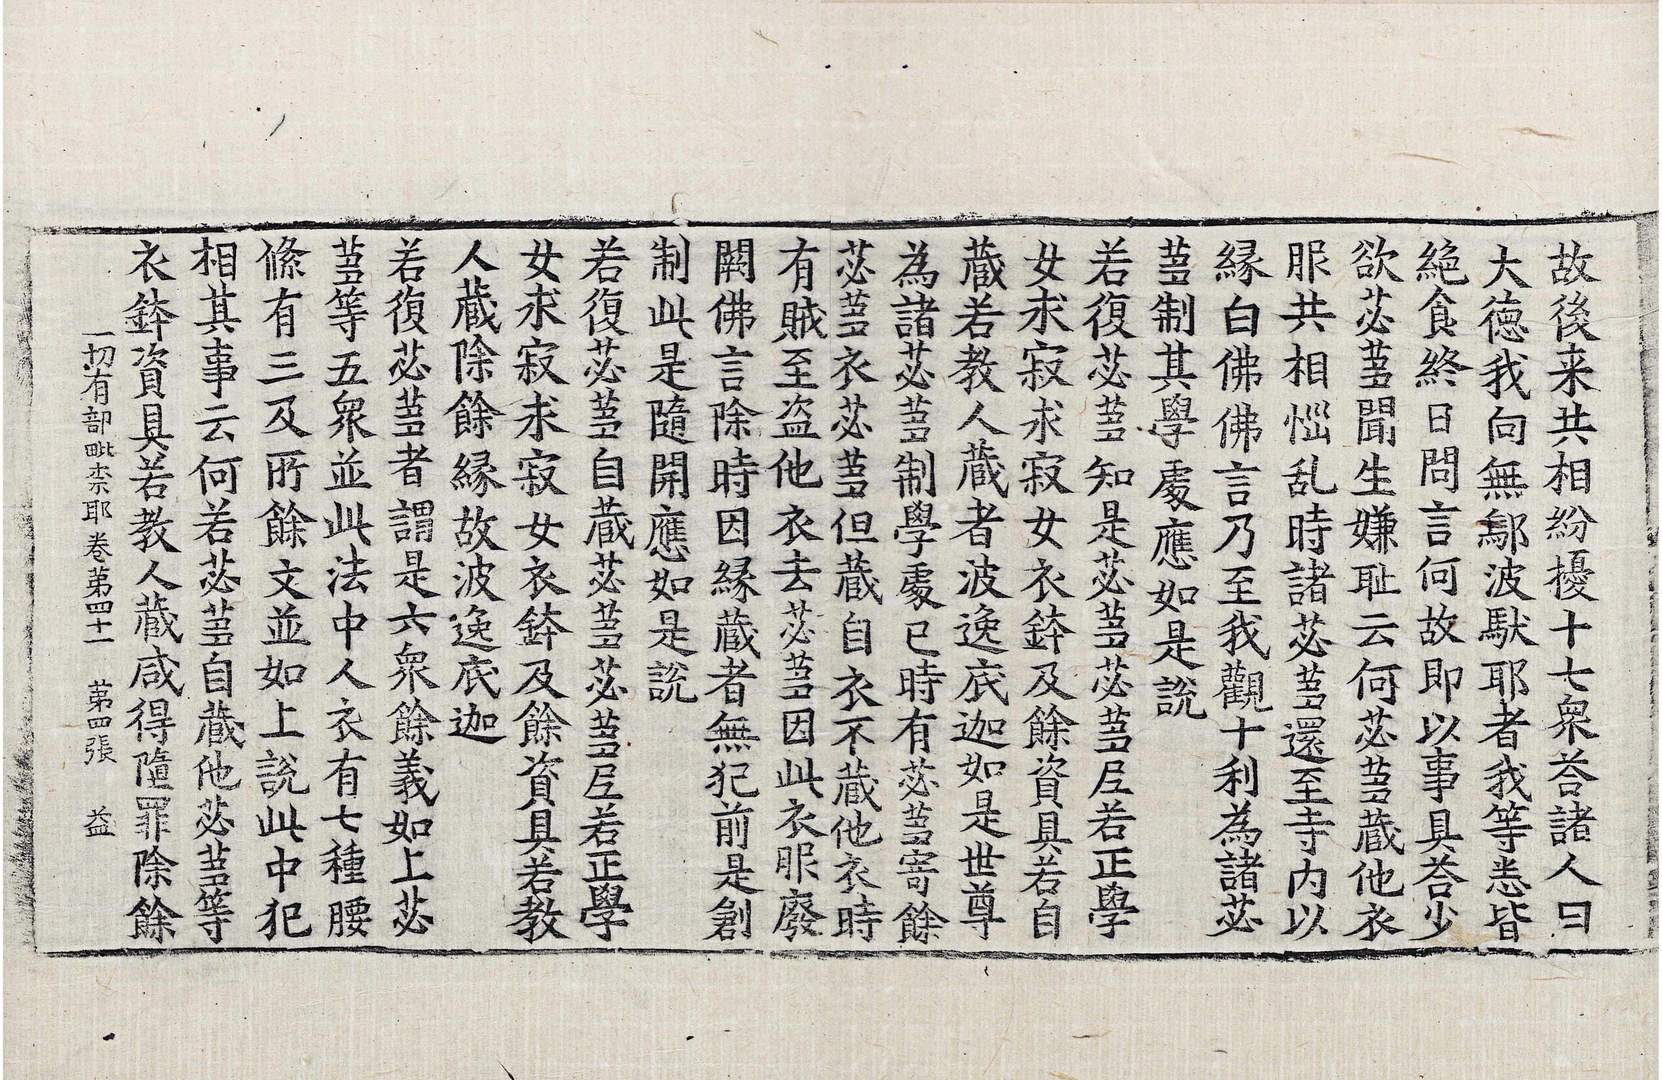 故後来共相紛擾十七衆荅諸人曰
大德我向無鄔波馱耶者我等悉皆
絶食終日問言何故即以事具荅少
欲苾蒭聞生嫌耻云何苾蒭藏他衣
服共相惱乱時諸苾蒭還至寺内以
縁白佛佛言乃至我觀十利為諸苾
蒭制其學處應如是說
若復苾蒭知是苾蒭苾蒭尼若正學
女求寂求寂女衣鉢及餘資具若自
藏若教人藏者波逸底迦如是世尊
為諸苾蒭制學處已時有苾蒭寄餘
苾蒭衣苾蒭但藏自衣不藏他衣時
有賊至盗他衣去苾蒭因此衣服廢
闕佛言除時因縁藏者無犯前是創
制此是隨開應如是說
若復苾蒭自藏苾蒭苾蒭尼若正學
女求寂求寂女衣鉢及餘資具若教
人藏除餘縁故波逸底迦
若復苾蒭者謂是六衆餘義如上苾
蒭等五衆並此法中人衣有七種腰
絛有三及所餘文並如上說此中犯
相其事云何若苾蒭自藏他苾蒭等
衣鉢資具若教人藏咸得隨罪除餘
一切有部毗柰耶卷第四十一　第四張　益